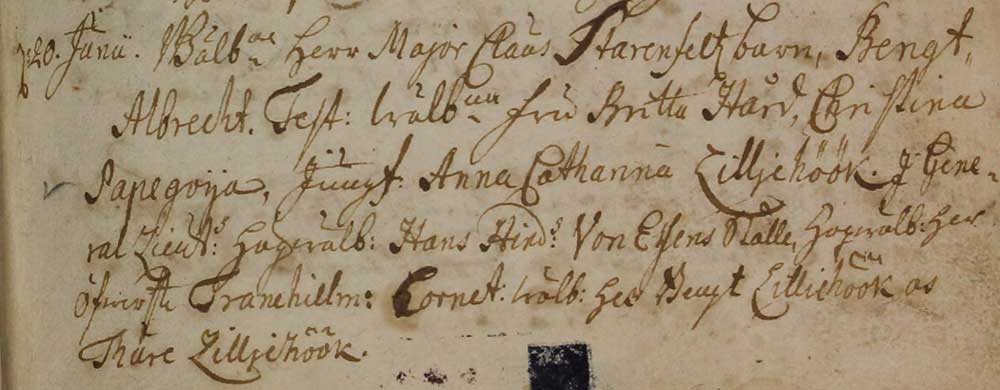 20. Junii. Wälb:ne Herr Major Claus Starenfeltz barn, Bengt,
Albrecht. Test: wälb:na fru Britta Hård, Christina
Papegoija, Jungf: Anna Catharina Lilljehöök. J Gene-
ral Lieut:s Högwälb: Hans Hind:s Von Essens ställe, högwälb: her
öfwerste Tranehielm: Cornet: wälb: her Bengt Lilliehöök as
Thure Lilljehöök.